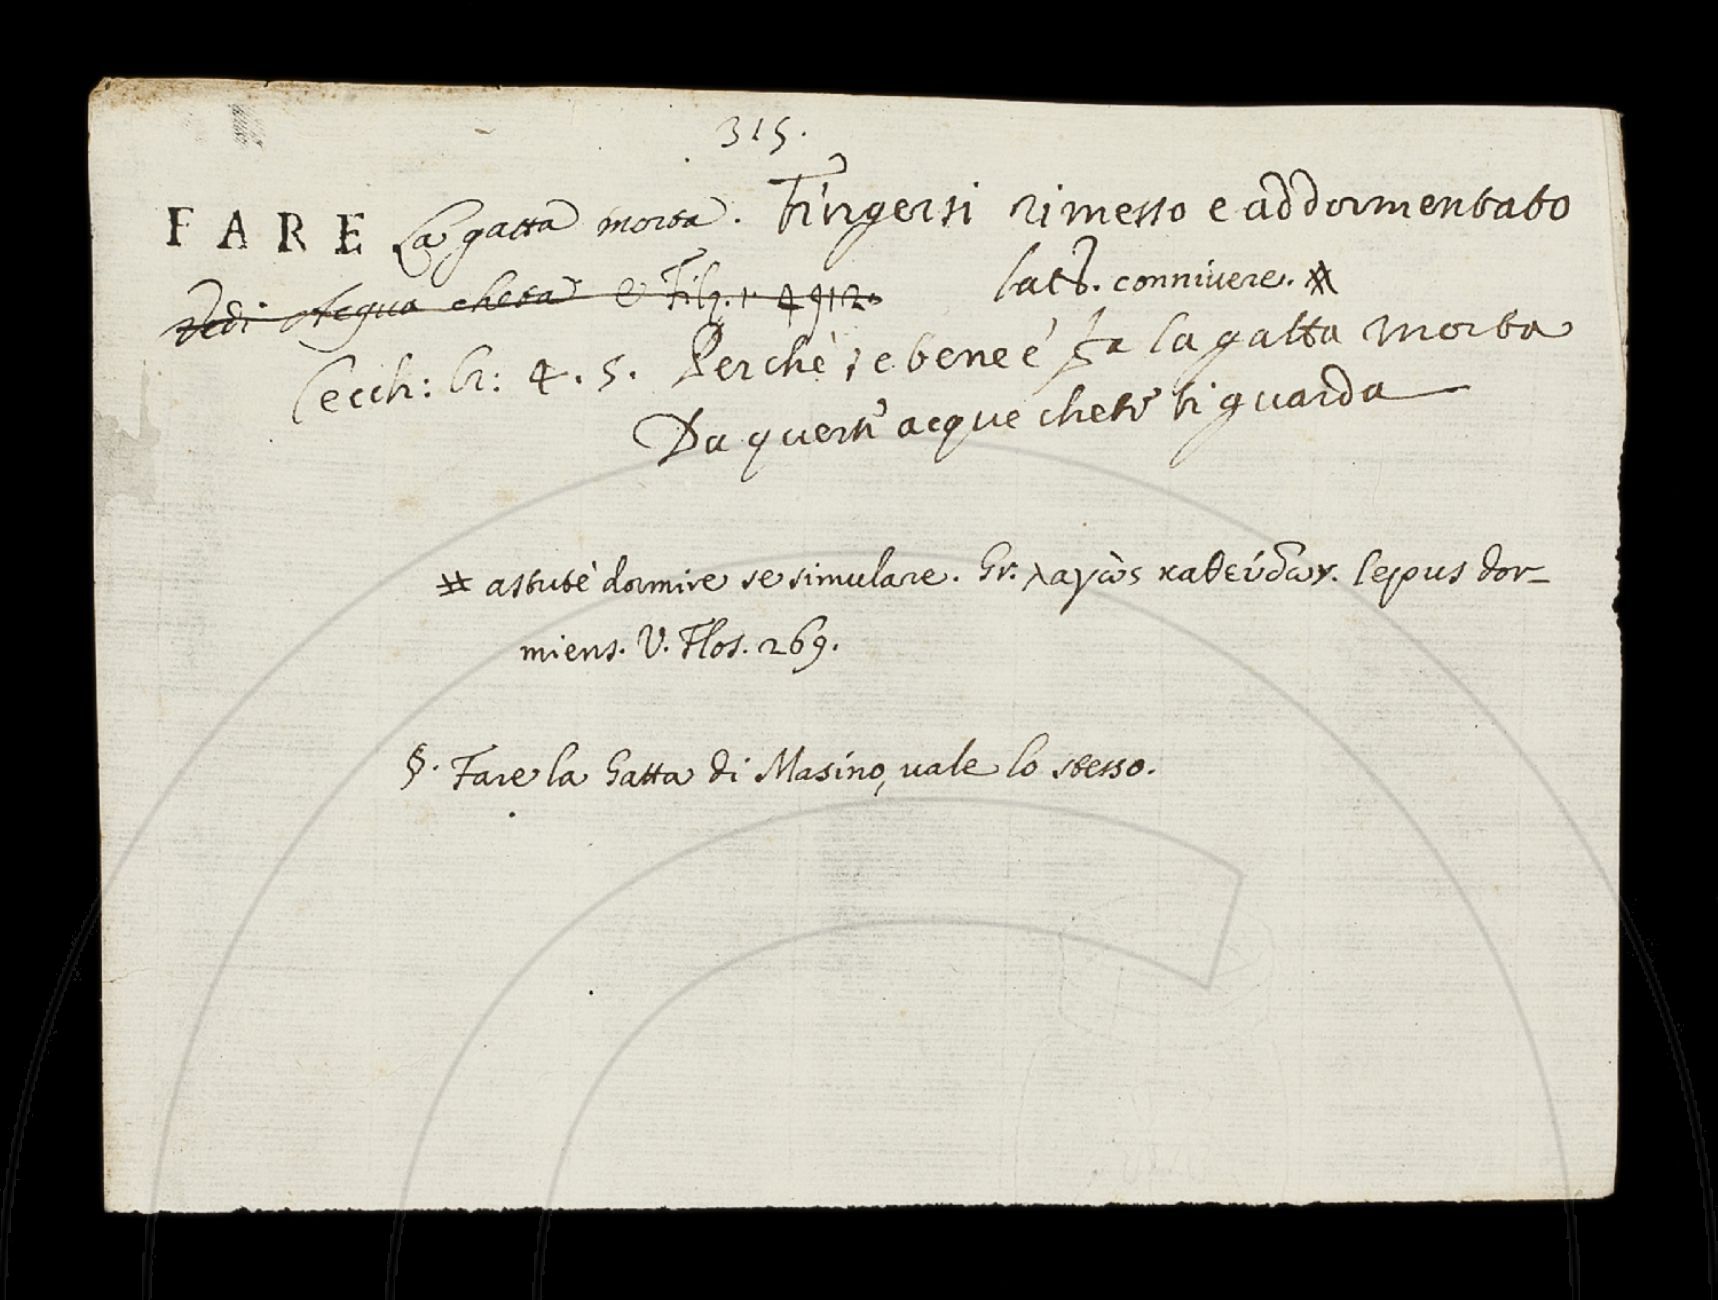 315.
FARE La gatta morta. Fingersi rimesso e addormentato
Vedi Acqua cheta e Filz. 1. 4912.
lat. connivere. #
Cecch: 4. 5. Perchè, se bene e' fa la gatta morta
Da quest' acque chete ti guarda
# astutè dormire se simulare. Gr. λαγὼς καθεύδων. lepus dor-
miens. V. Flos. 269.
§. Fare la Gatta di Masino, vale lo stesso.